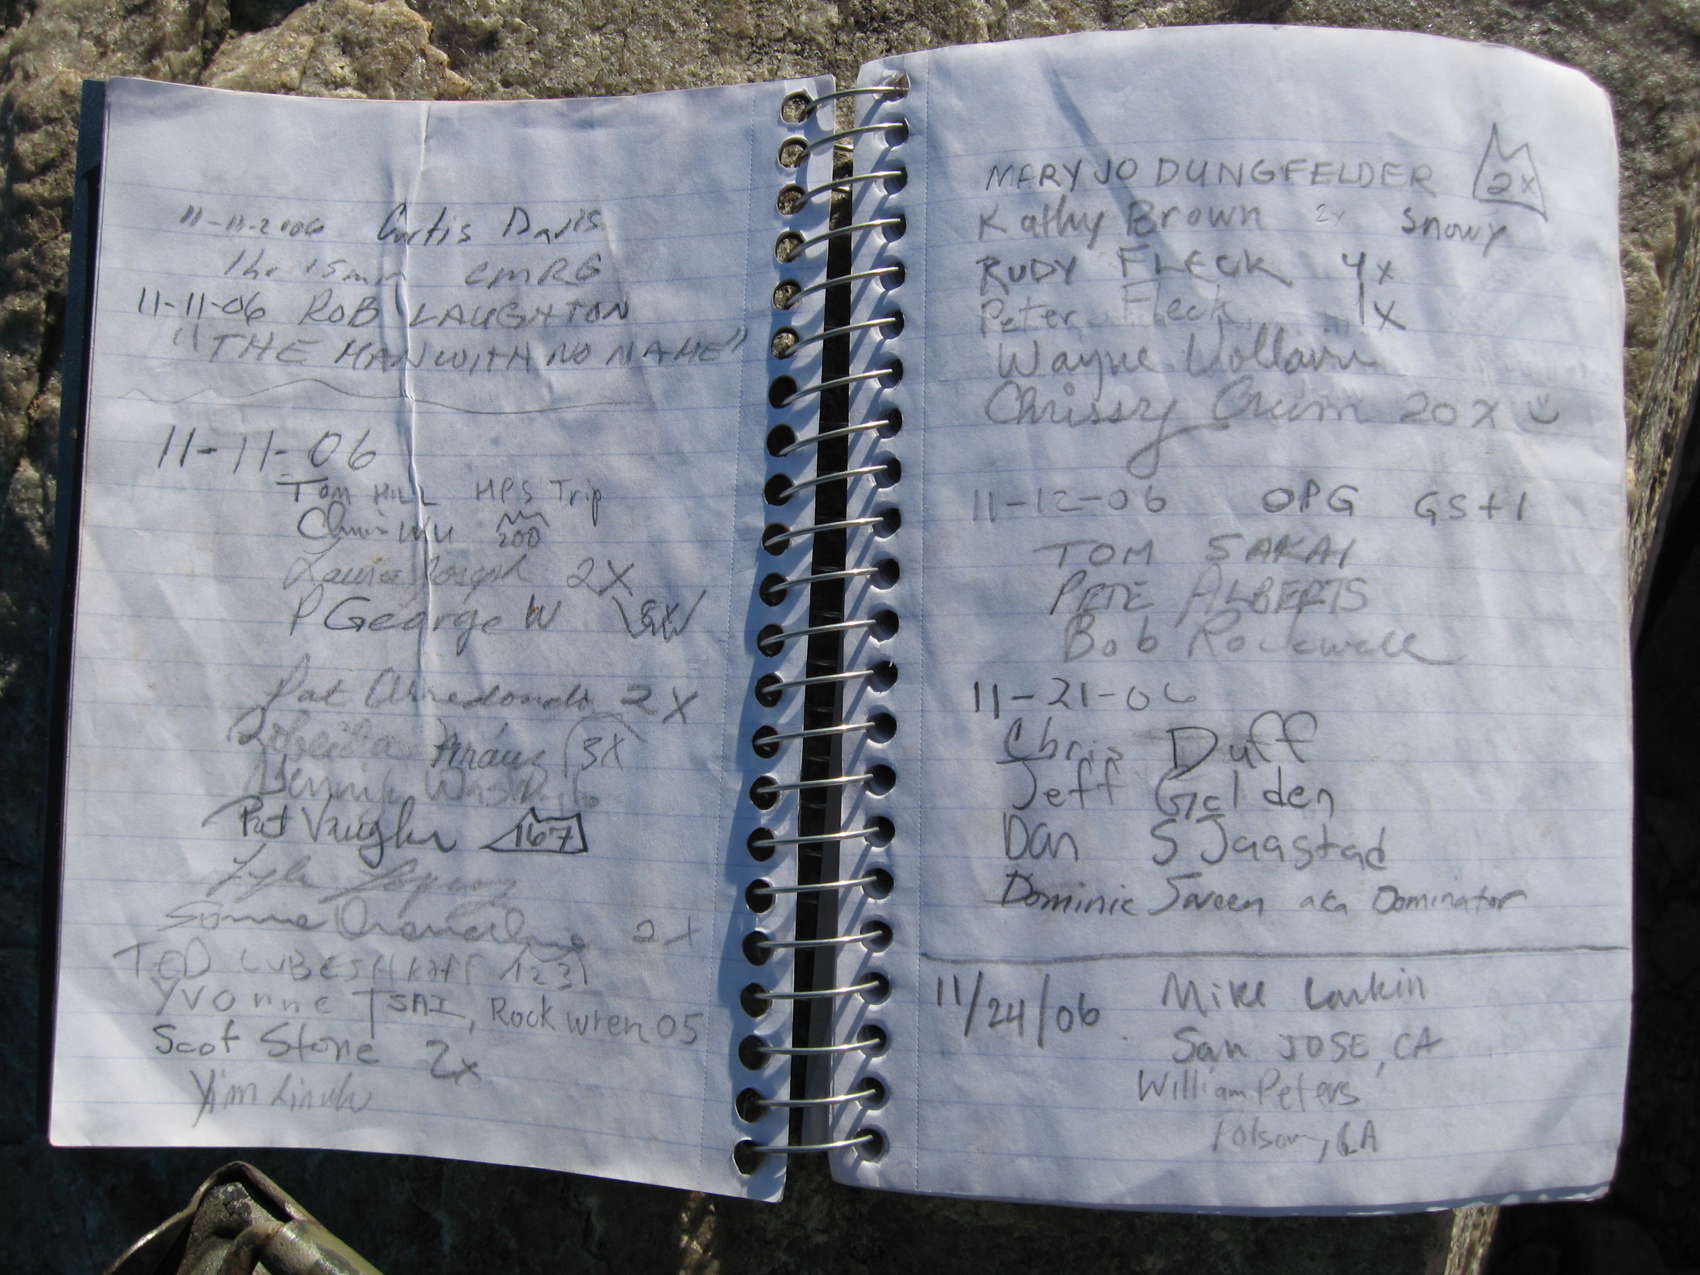 11-11-2006 Curtis Davis
1hr 15min CMRG
11-11-06 ROB LAUGHTON
"THE MAN WITH NO NAME"
11-11-06
TOM HILL HPS Trip
Chris Wu 200
Laura Joseph 2X
P George W
Pat Arredondo 2X
Arauz 3X
Pat Vaughn 167
2X
TED LUBESHKOFF 123!
Yvonne TSAI, Rock wren 05
Scot Stone 2x
MARY JO DUNGFELDER 2x
Kathy Brown 2x Snowy
RUDY FLECK 4x
Peter Fleck 1x
Wayne Vollaire
Chrissy Crum 20X
11-12-06 OPG GS+1
TOM SAKAI
PETE ALBERTS
Bob Rockwell
11-21-06
Chris Duff
Jeff Golden
Dan SJaastad
Dominic aka Dominator
11/24/06 Mike Larkin
San JOSE, CA
William Peters
Folsom, CA